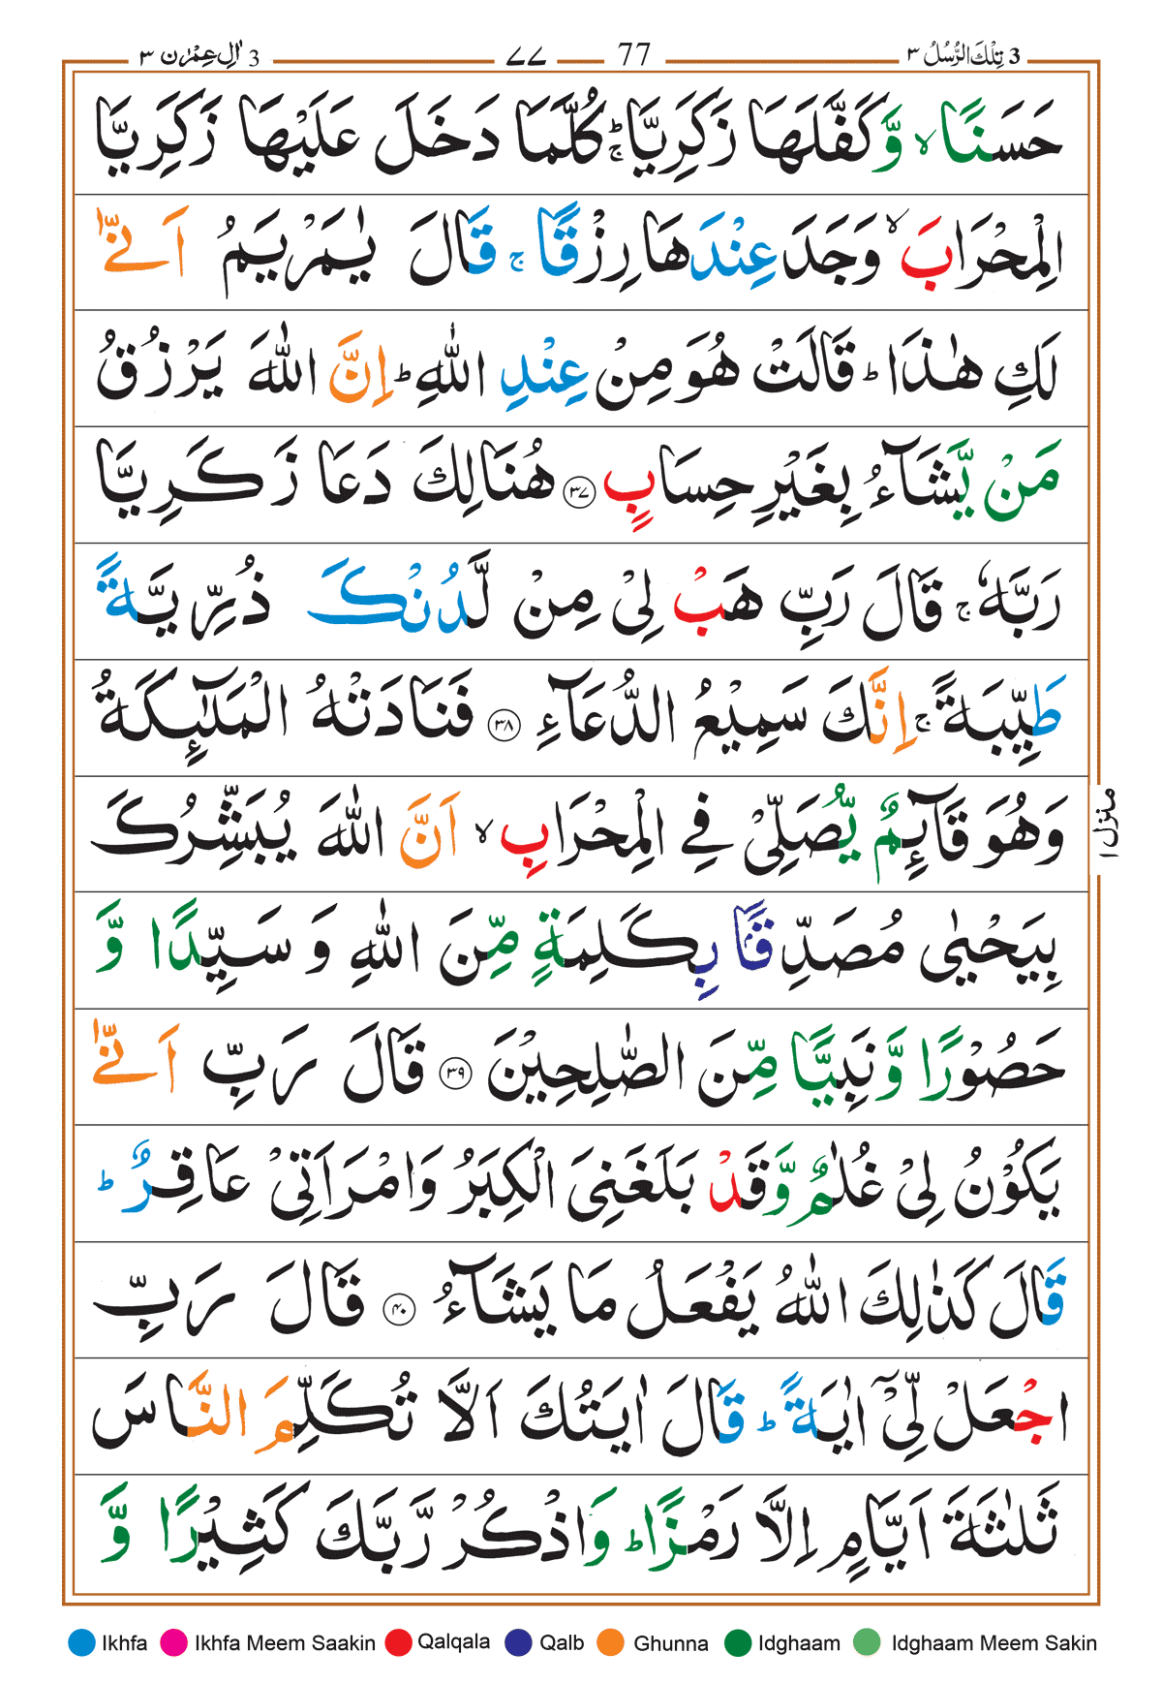 3 تِلْكَ الرُّسُلُ ٣ 77 ٧٧ 3 اٰلِ عِمْرٰن ٣
حَسَنًا ۙ وَّكَفَّلَهَا زَكَرِيَّا ۚؕ كُلَّمَا دَخَلَ عَلَيْهَا زَكَرِيَّا
الْمِحْرَابَ ۙ وَجَدَ عِنْدَهَا رِزْقًا ۚ قَالَ يٰمَرْيَمُ اَنّٰى
لَكِ هٰذَا ؕ قَالَتْ هُوَ مِنْ عِنْدِ اللّٰهِ ؕ اِنَّ اللّٰهَ يَرْزُقُ
مَنْ يَّشَآءُ بِغَيْرِ حِسَابٍ ﴿۳۷﴾ هُنَالِكَ دَعَا زَكَرِيَّا
رَبَّهٗ ۚ قَالَ رَبِّ هَبْ لِىْ مِنْ لَّدُنْكَ ذُرِّيَّةً
طَيِّبَةً ۚ اِنَّكَ سَمِيْعُ الدُّعَآءِ ﴿۳۸﴾ فَنَادَتْهُ الْمَلٰٓئِكَةُ
وَهُوَ قَآئِمٌ يُّصَلِّىْ فِى الْمِحْرَابِ ۙ اَنَّ اللّٰهَ يُبَشِّرُكَ
بِيَحْيٰى مُصَدِّقًۢا بِكَلِمَةٍ مِّنَ اللّٰهِ وَ سَيِّدًا وَّ
حَصُوْرًا وَّنَبِيًّا مِّنَ الصّٰلِحِيْنَ ﴿۳۹﴾ قَالَ رَبِّ اَنّٰى
يَكُوْنُ لِىْ غُلٰمٌ وَّقَدْ بَلَغَنِىَ الْكِبَرُ وَامْرَاَتِىْ عَاقِرٌ ؕ
قَالَ كَذٰلِكَ اللّٰهُ يَفْعَلُ مَا يَشَآءُ ﴿۴۰﴾ قَالَ رَبِّ
اجْعَلْ لِّىْۤ اٰيَةً ؕ قَالَ اٰيَتُكَ اَلَّا تُكَلِّمَ النَّاسَ
ثَلٰثَةَ اَيَّامٍ اِلَّا رَمْزًا ؕ وَاذْكُرْ رَّبَّكَ كَثِيْرًا وَّ
منزل ١
Ikhfa Ikhfa Meem Saakin Qalqala Qalb Ghunna Idghaam Idghaam Meem Sakin